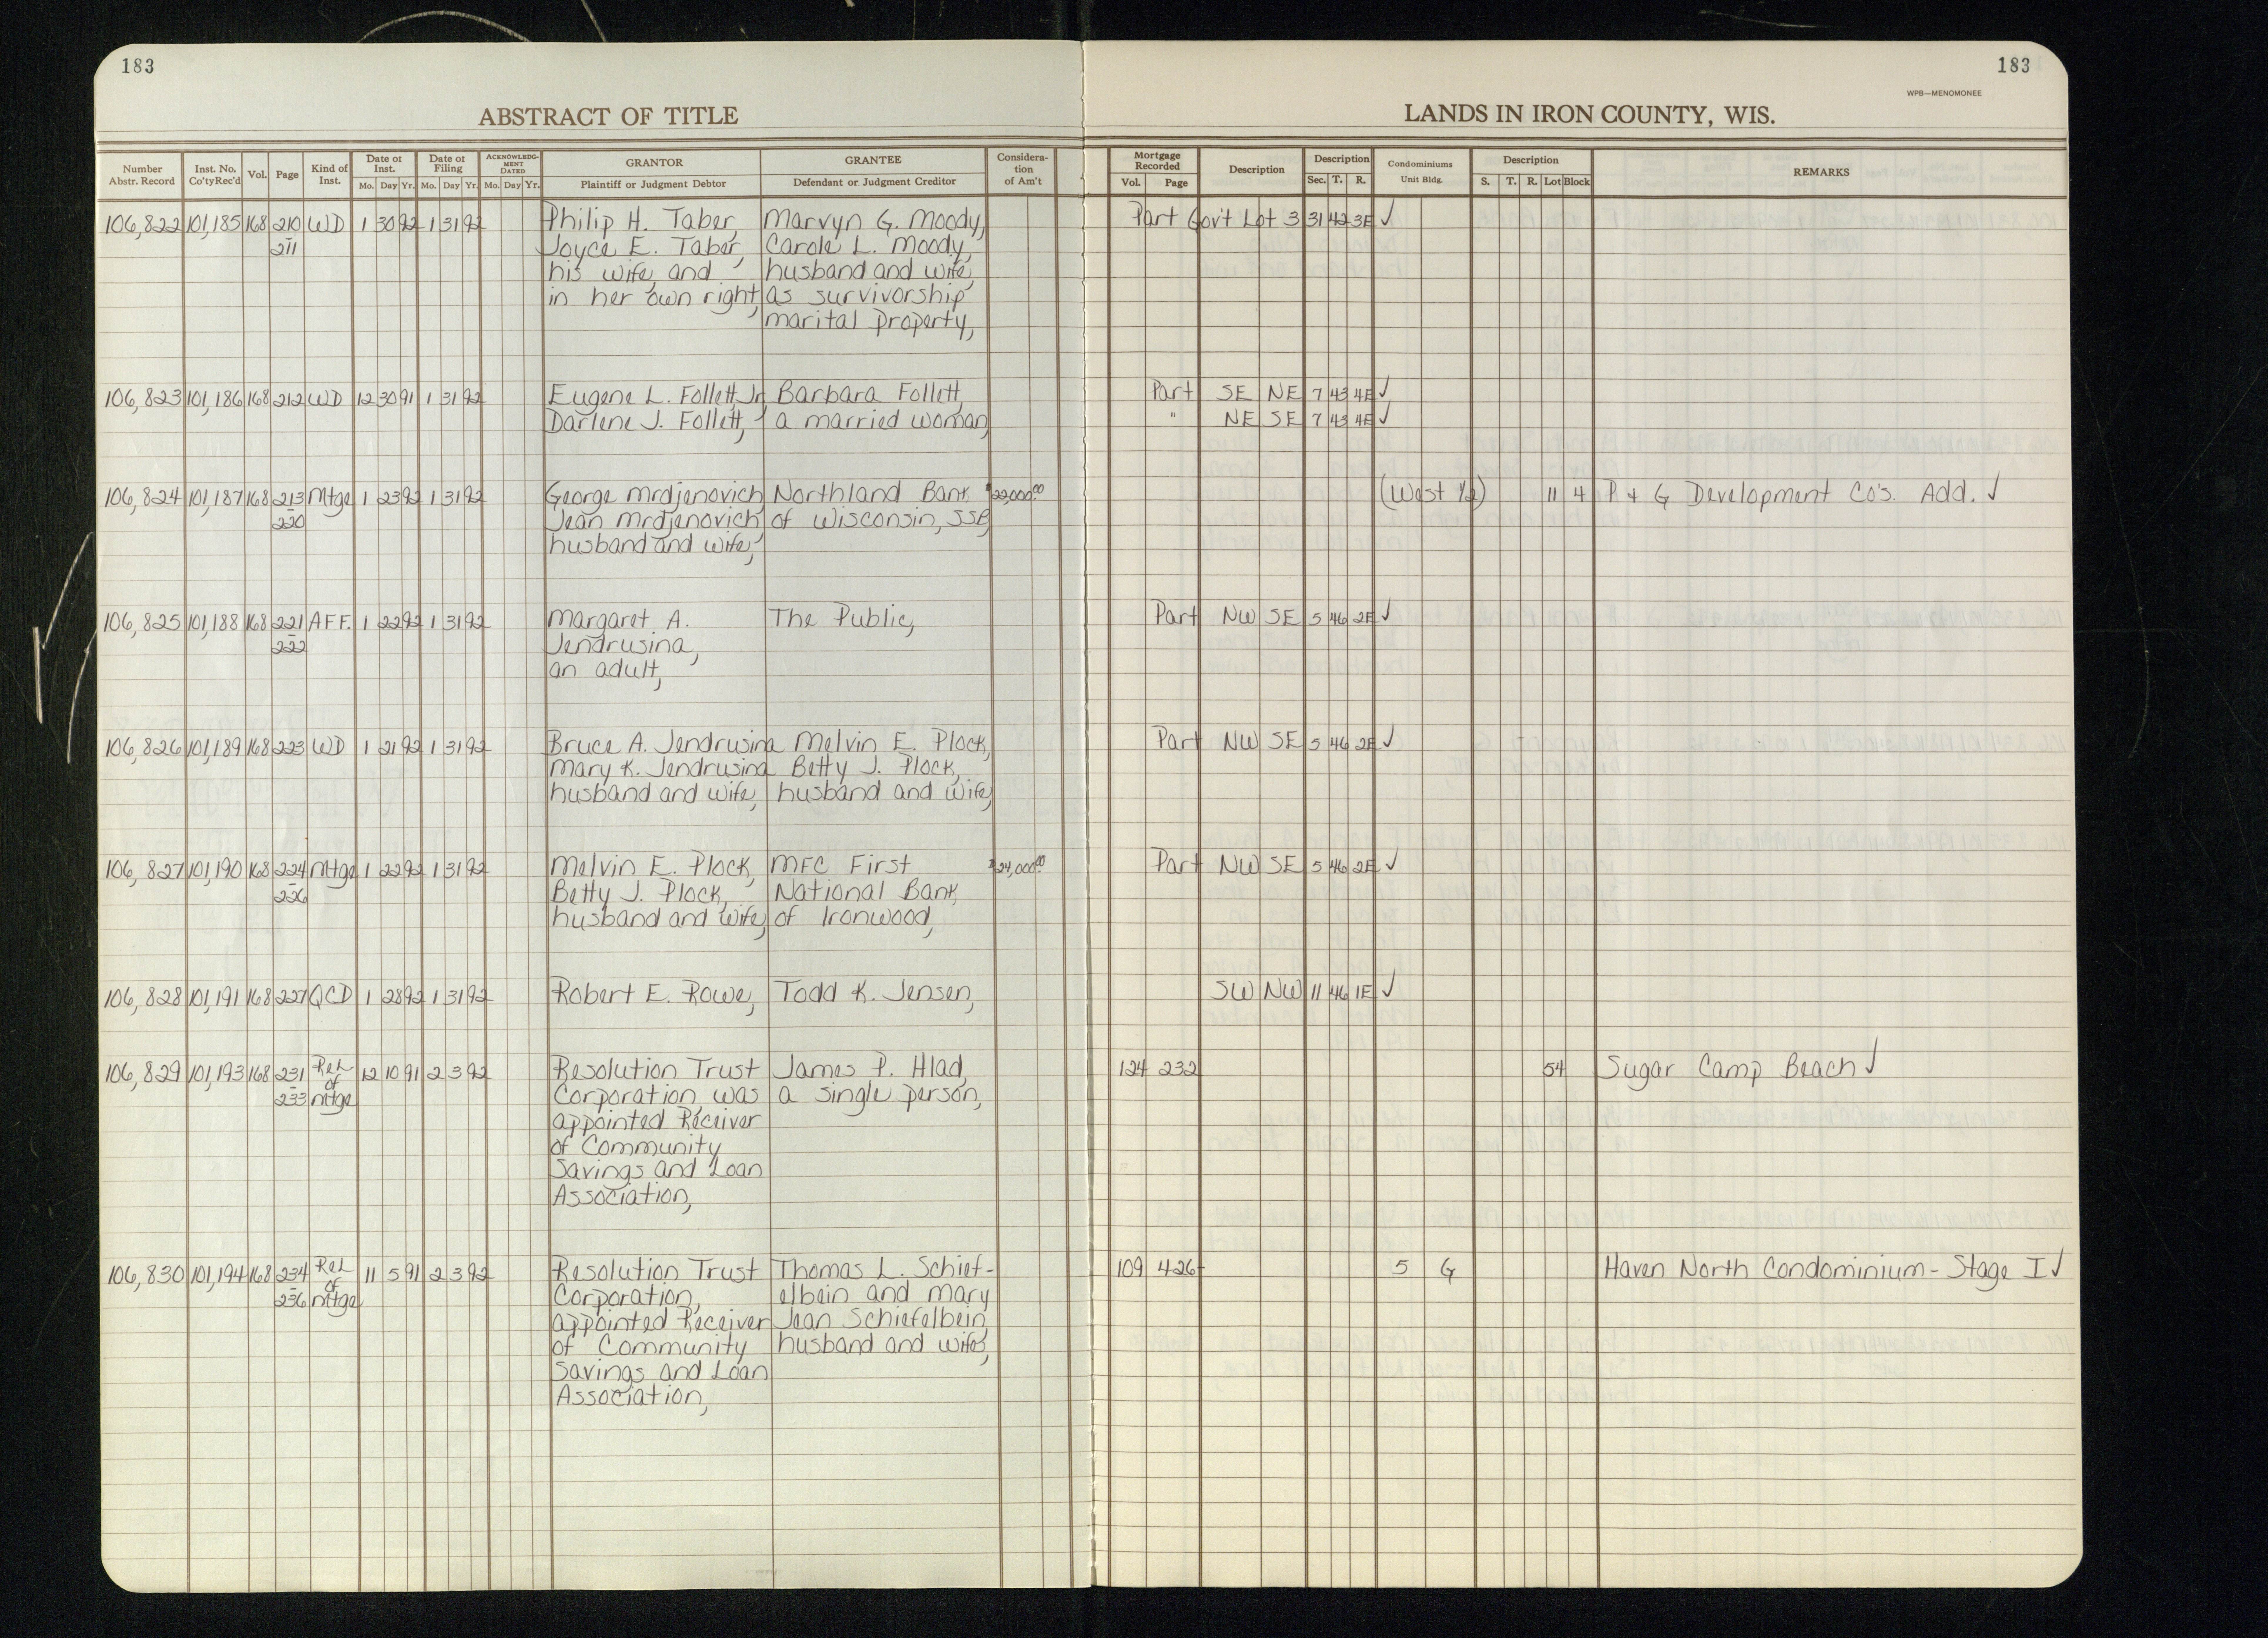 183
183
WPB—MENOMONEE
ABSTRACT OF TITLE
LANDS IN IRON COUNTY, WIS.
Number Abstr. Record | Inst. No. Co'tyRec'd | Vol. | Page | Kind of Inst. | Date of Inst. Mo. Day Yr. | Date of Filing Mo. Day Yr. | ACKNOWLEDGMENT DATED Mo. Day Yr. | GRANTOR Plaintiff or Judgment Debtor | GRANTEE Defendant or Judgment Creditor | Consideration of Am't | Mortgage Recorded Vol. Page | Description | Description Sec. T. R. | Condominiums Unit Bldg. | Description S. T. R. Lot Block | REMARKS
106,822 101,185 168 210 WD 1 30 92 1 31 92 Philip H. Taber, Marvyn G. Moody, Part Gov't Lot 3 31 42 3E ✓
- 211 Joyce E. Taber, Carole L. Moody,
his wife, and husband and wife,
in her own right, as survivorship
marital property,
106,823 101,186 168 212 WD 12 30 91 1 31 92 Eugene L. Follett, Jr. Barbara Follett, Part SE NE 7 43 4E ✓
Darlene J. Follett, a married woman, " NE SE 7 43 4E ✓
106,824 101,187 168 213 Mtge 1 23 92 1 31 92 George Mrdjenovich Northland Bank $22,000.00 (West 1/2) 11 4 P & G Development Co's. Add. ✓
- 220 Jean Mrdjenovich of Wisconsin, SSB
husband and wife,
106,825 101,188 168 221 AFF. 1 22 92 1 31 92 Margaret A. The Public, Part NW SE 5 46 2E ✓
- 222 Jendrusina,
an adult,
106,826 101,189 168 223 WD 1 21 92 1 31 92 Bruce A. Jendrusina Melvin E. Plock, Part NW SE 5 46 2E ✓
Mary K. Jendrusina Betty J. Plock,
husband and wife, husband and wife,
106,827 101,190 168 224 Mtge 1 22 92 1 31 92 Melvin E. Plock, MFC First $24,000.00 Part NW SE 5 46 2E ✓
- 226 Betty J. Plock, National Bank
husband and wife, of Ironwood,
106,828 101,191 168 227 QCD 1 28 92 1 31 92 Robert E. Rowe, Todd K. Jensen, SW NW 11 46 1E ✓
106,829 101,193 168 231 Rel. of 12 10 91 2 3 92 Resolution Trust James P. Hlad, 124 232 54 Sugar Camp Beach ✓
- 233 Mtge Corporation was a single person,
appointed Receiver
of Community
Savings and Loan
Association,
106,830 101,194 168 234 Rel. of 11 5 91 2 3 92 Resolution Trust Thomas L. Schief- 109 426 5 G Haven North Condominium - Stage I ✓
- 236 Mtge Corporation, elbein and Mary
appointed Receiver Jean Schiefelbein,
of Community husband and wife,
Savings and Loan
Association,